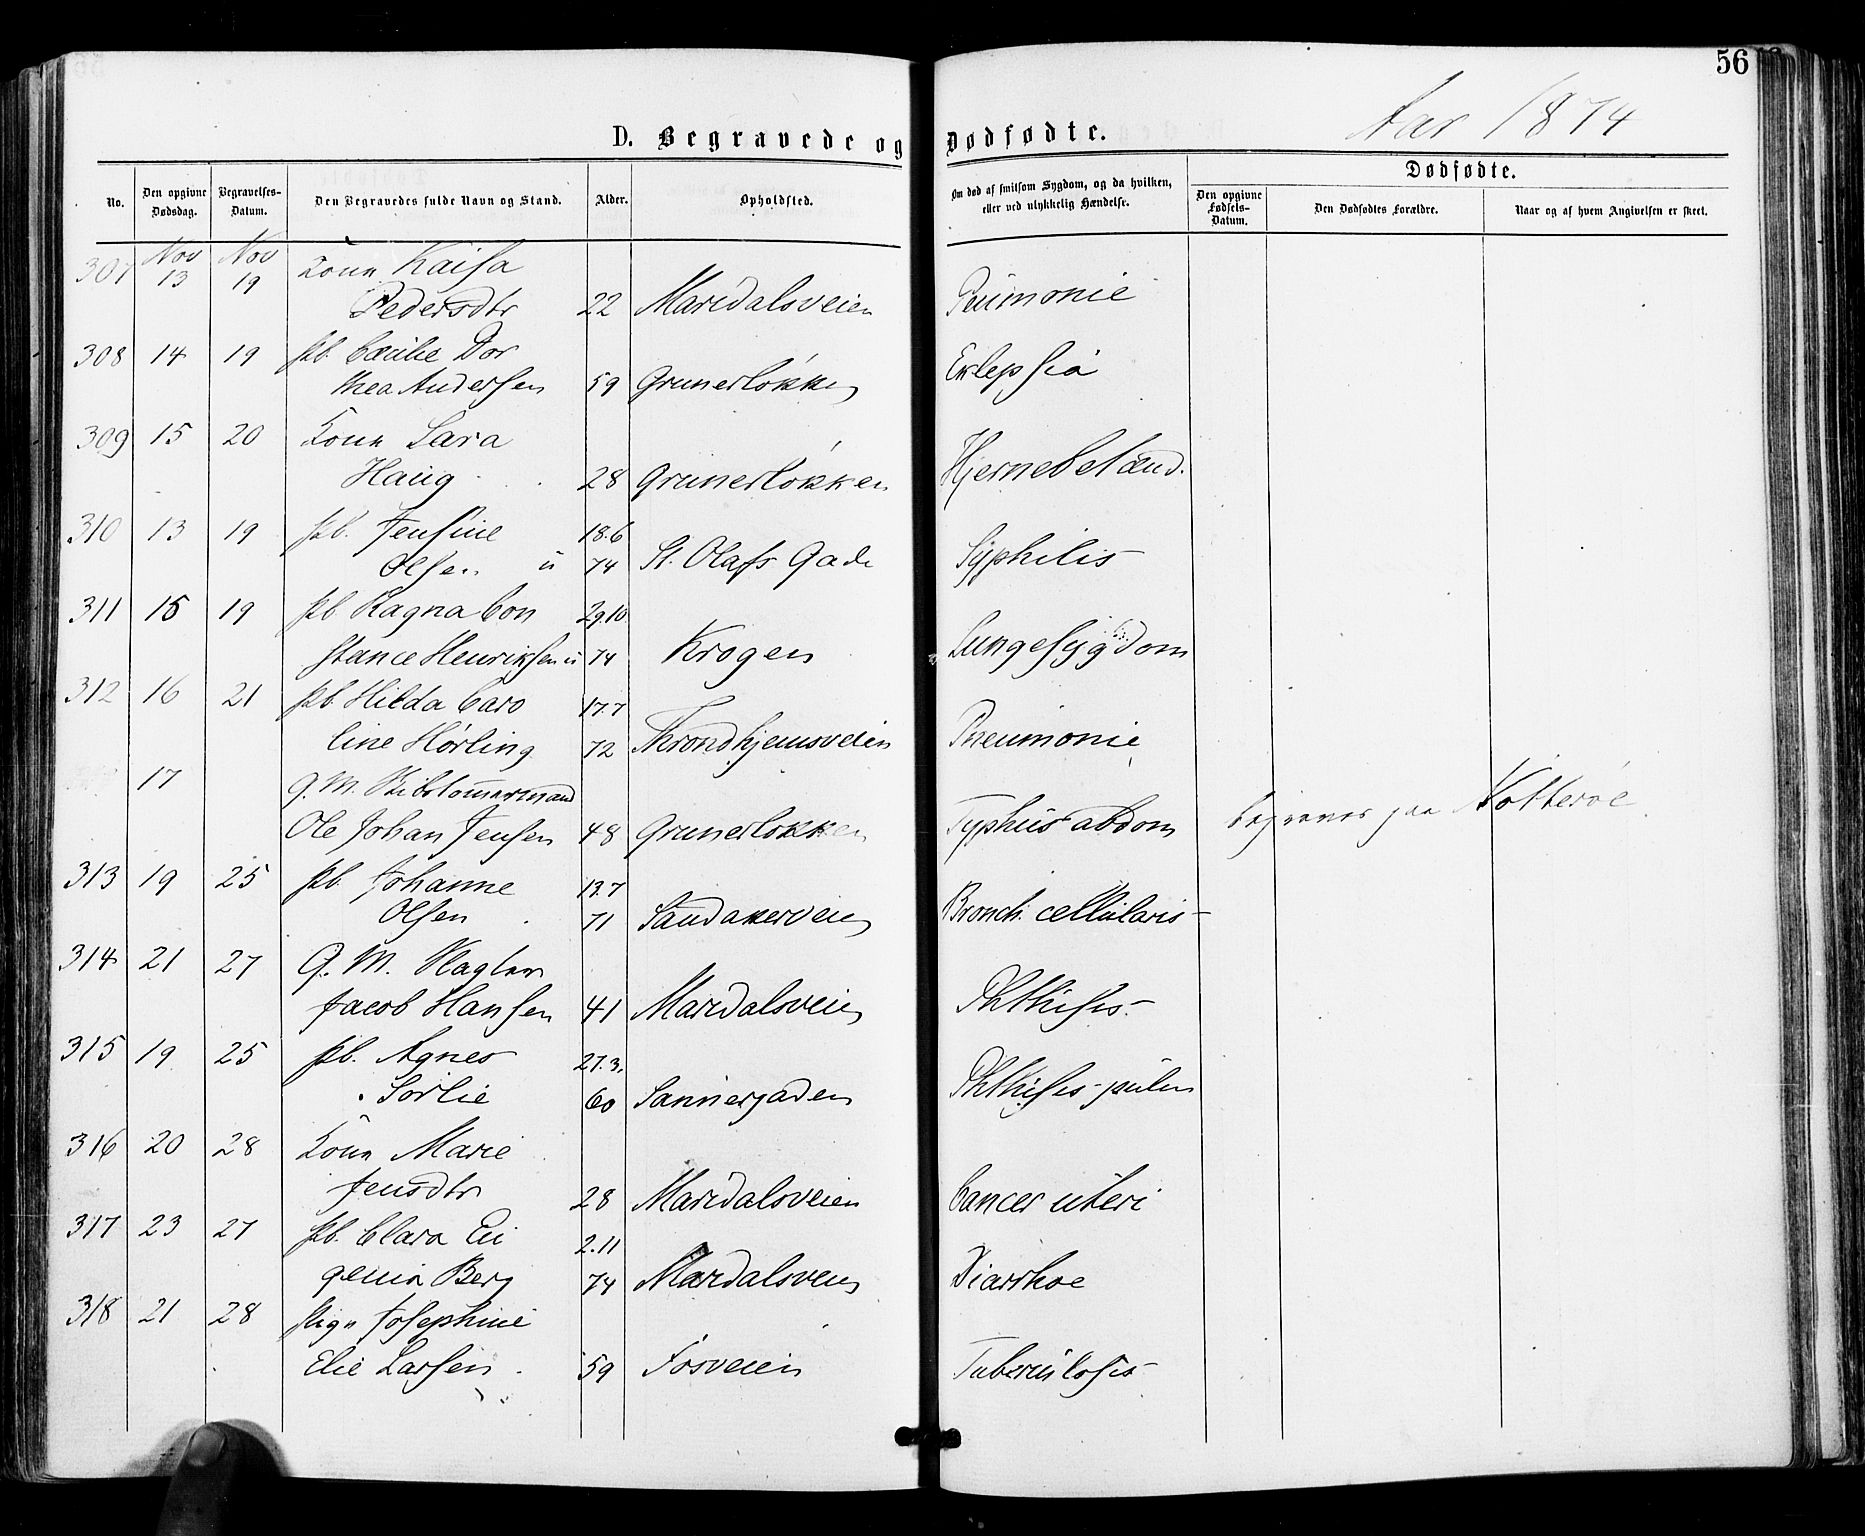 56
Aar 1874
D. Begravede og Dødfødte.
No. Den opgivne Dødsdag. Begravelses-Datum. Den Begravedes fulde Navn og Stand. Alder. Opholdsted. Om død af smitsom Sygdom, og da hvilken, eller ved ulykkelig Hændelse. Dødfødte.
Den opgivne Fødsels-Datum. Den Dødfødtes Forældre. Naar og af hvem Angivelsen er skeet.
307 Nov 13 Nov 19 Kona Kaisa
Pedersdtr 22 Maridalsveien Peumonie
308 14 19 pb. Cæcilie Dor
thea Andersen 59 Grunerløkken Eklepsia
309 15 20 Kona Sara
Haug 28 Grunerløkken Hjernebetænd.
310 13 19 pb. Jensine 18.6
Olsen u 74 St. Olafs Gade Syphilis
311 15 19 pb Ragna Con 29.10
stance Henriksen u 74 Krogen Lungesygdom
312 16 21 pb. Hilda Caro 17.7
line Hørling 72 Throndhjemsveien Pneumonie
17 G. M.
Ole Johan Jensen 48 Grunerløkken Typhus abdom begraves paa Nötterøe
313 19 25 pb. Johanne 13.7
Olsen 71 Sandakerveien Bronch. cellularis
314 21 27 G. M. Vlagter
Jacob Hansen 41 Maridalsveien Phthisis
315 19 25 pb. Agnes 27.3.
Sørlie 60 Sannergaden Phthisis pulm
316 20 28 Kona Marie
Jensdtr 28 Maridalsveien Cancer uteri
317 23 27 pb. Clara Eu 2.11
genia Berg 74 Maridalsveien Diarrhoe
318 21 28 pige Josephine
Elie Larsen 59 Fosveien Tuberculosis